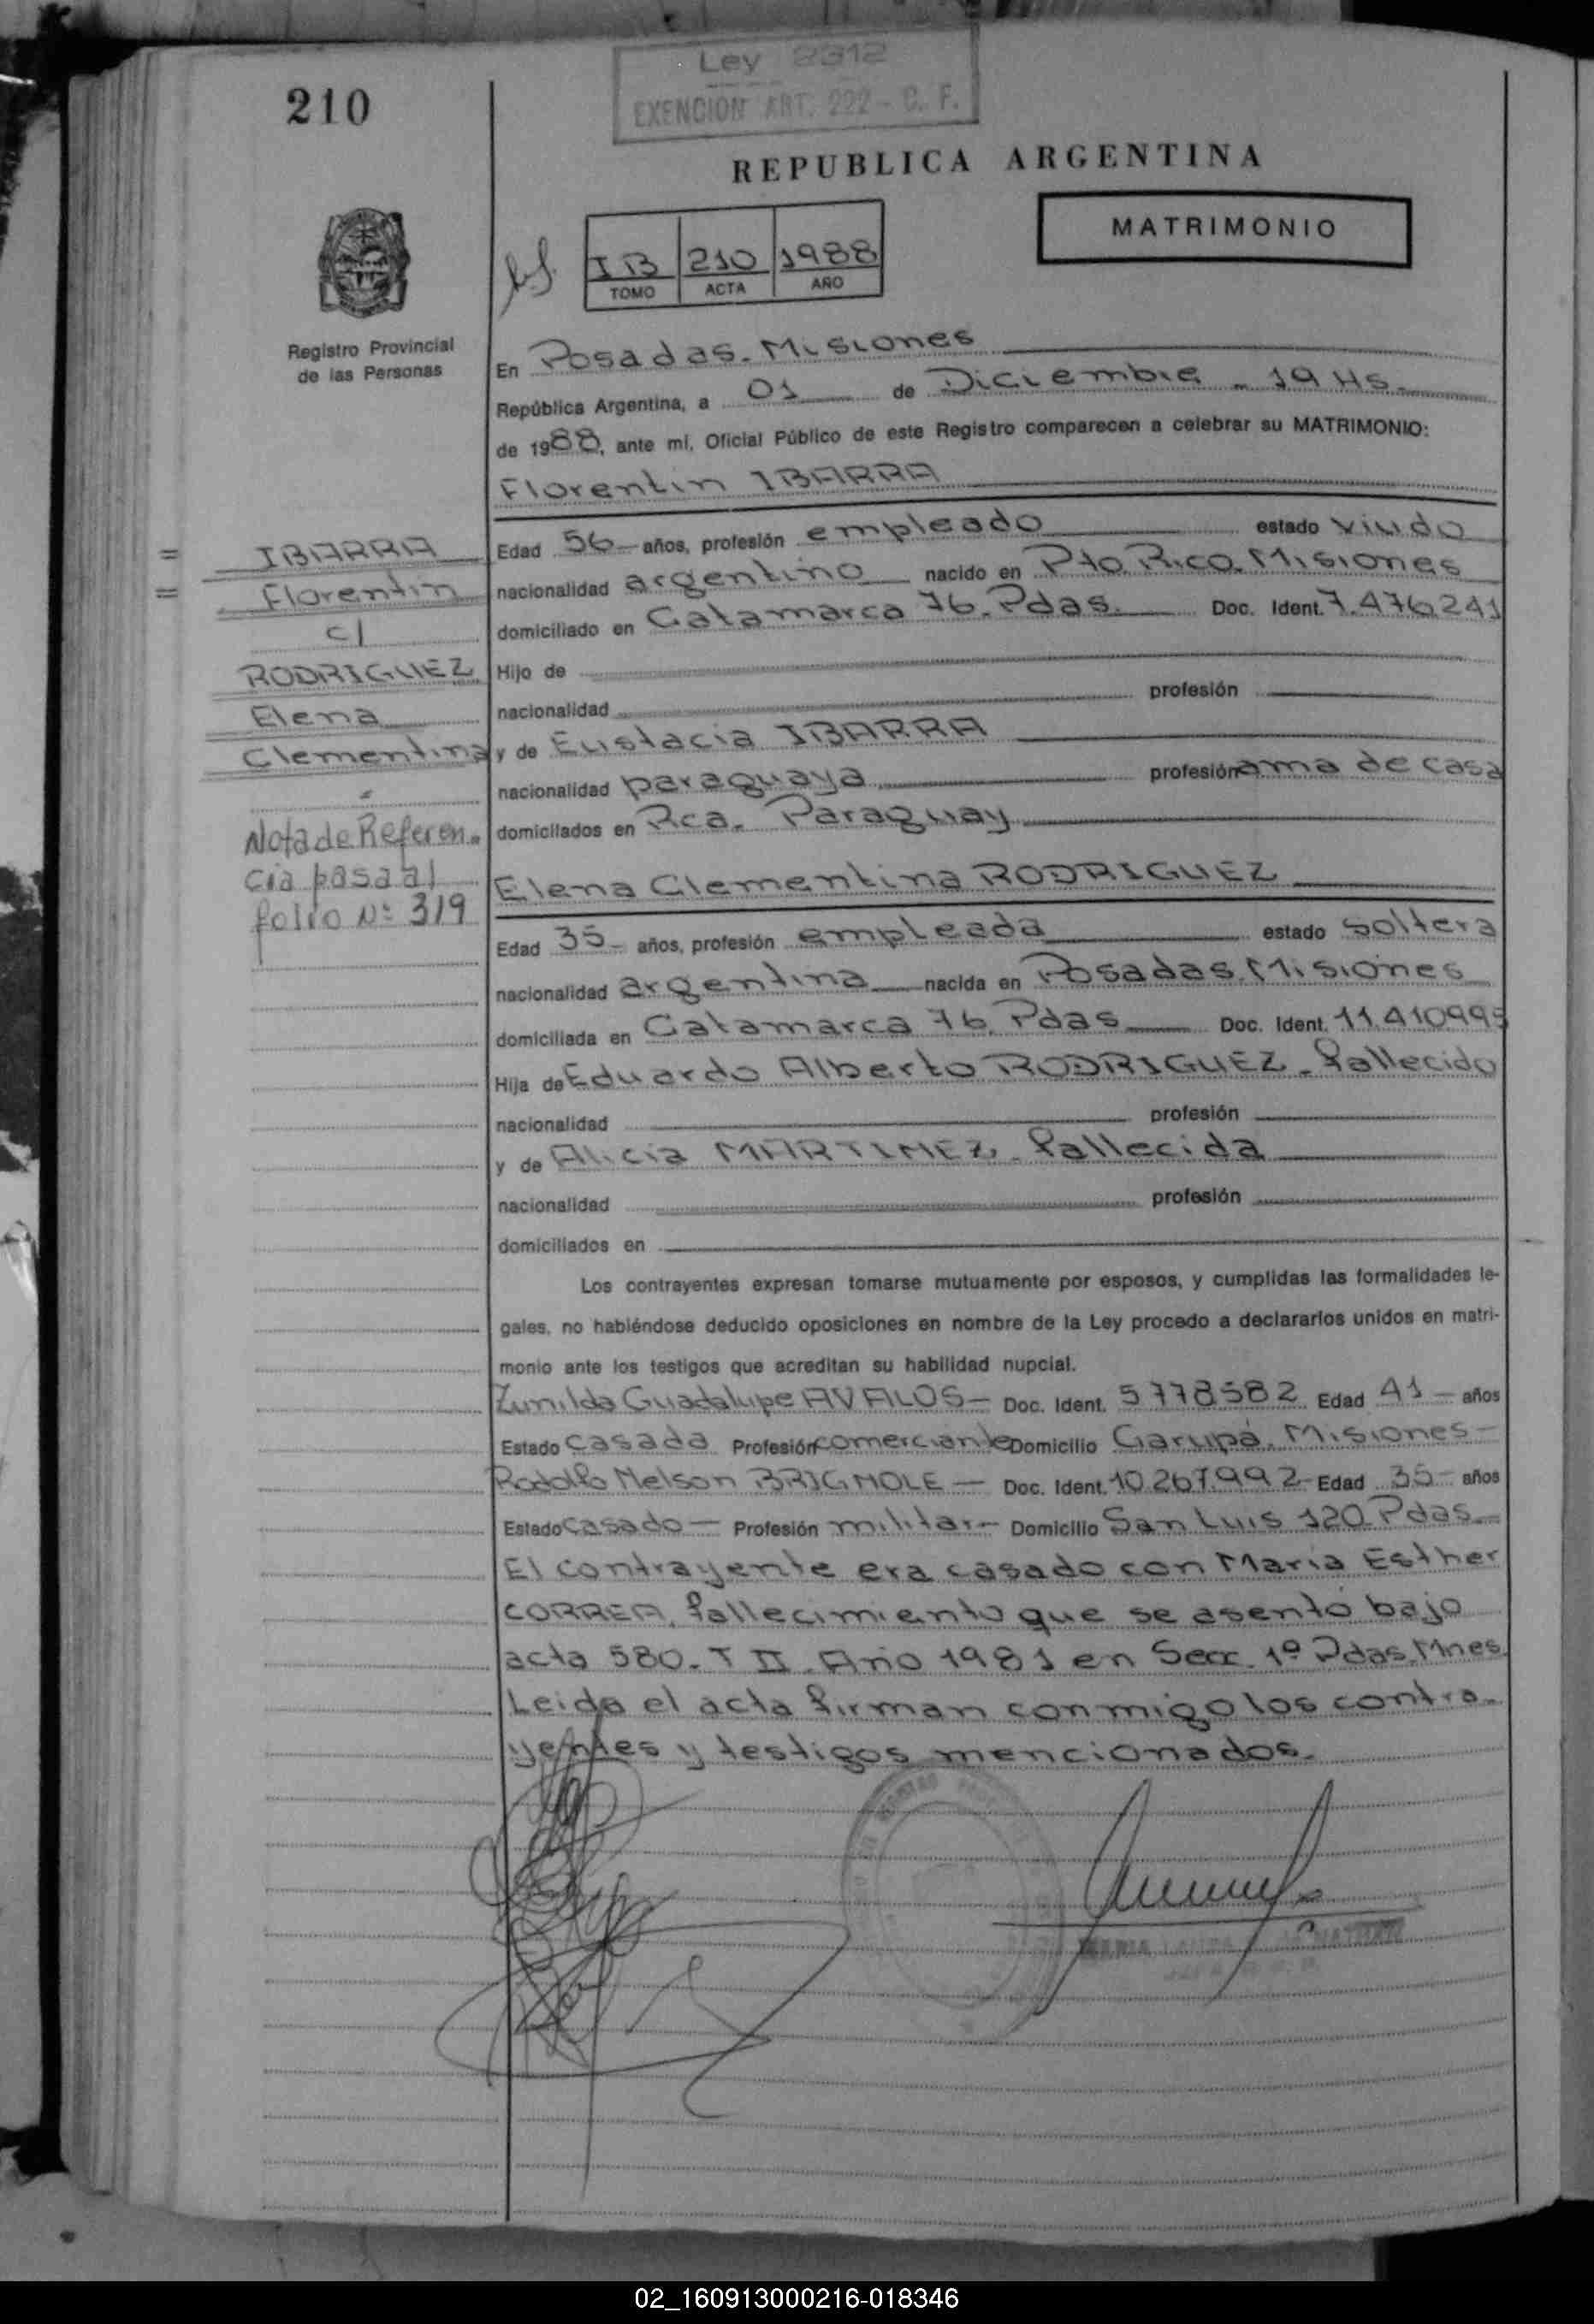 Ley 2312
EXENCION ART. 222 - C. F.
210
REPUBLICA ARGENTINA
MATRIMONIO
IB 210 1988
TOMO ACTA AÑO
Registro Provincial
de las Personas
En Posadas. Misiones
República Argentina, a 01 de Diciembre - 19 Hs.
de 1988, ante mí, Oficial Público de este Registro comparecen a celebrar su MATRIMONIO:
Florentin IBARRA
Edad 56 - años, profesión empleado estado viudo
nacionalidad argentino nacido en Pto. Rico. Misiones
domiciliado en Catamarca 76. Pdas. Doc. Ident. 7.476.241
Hijo de
nacionalidad profesión
y de Eustacia IBARRA
nacionalidad paraguaya profesión ama de casa
domiciliados en Rca. Paraguay
Elena Clementina RODRIGUEZ
Edad 35 - años, profesión empleada estado soltera
nacionalidad argentina nacida en Posadas. Misiones
domiciliada en Catamarca 76. Pdas Doc. Ident. 11.410995
Hija de Eduardo Alberto RODRIGUEZ - fallecido
nacionalidad profesión
y de Alicia MARTINEZ - fallecida
nacionalidad profesión
domiciliados en
= IBARRA
= Florentin
c/
RODRIGUEZ
Elena
Clementina
Nota de Referen-
cia pasa al
folio Nº 319
Los contrayentes expresan tomarse mutuamente por esposos, y cumplidas las formalidades le-
gales, no habiéndose deducido oposiciones en nombre de la Ley procedo a declararlos unidos en matri-
monio ante los testigos que acreditan su habilidad nupcial.
Zunilda Guadalupe AVALOS - Doc. Ident. 5778582 Edad 41 - años
Estado casada Profesión comerciante Domicilio Garupá. Misiones -
Rodolfo Nelson BRIGNOLE - Doc. Ident. 10.267.992 - Edad 35 - años
Estado casado - Profesión militar - Domicilio San Luis 120 Pdas. -
El contrayente era casado con Maria Esther
CORREA, fallecimiento que se asentó bajo
acta 580. T II. Año 1981 en Secc. 1º Pdas. Mnes.
Leida el acta firman conmigo los contra-
yentes y testigos mencionados.
MARIA
02_160913000216-018346